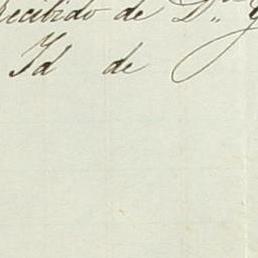 recibido de D.n
Id de